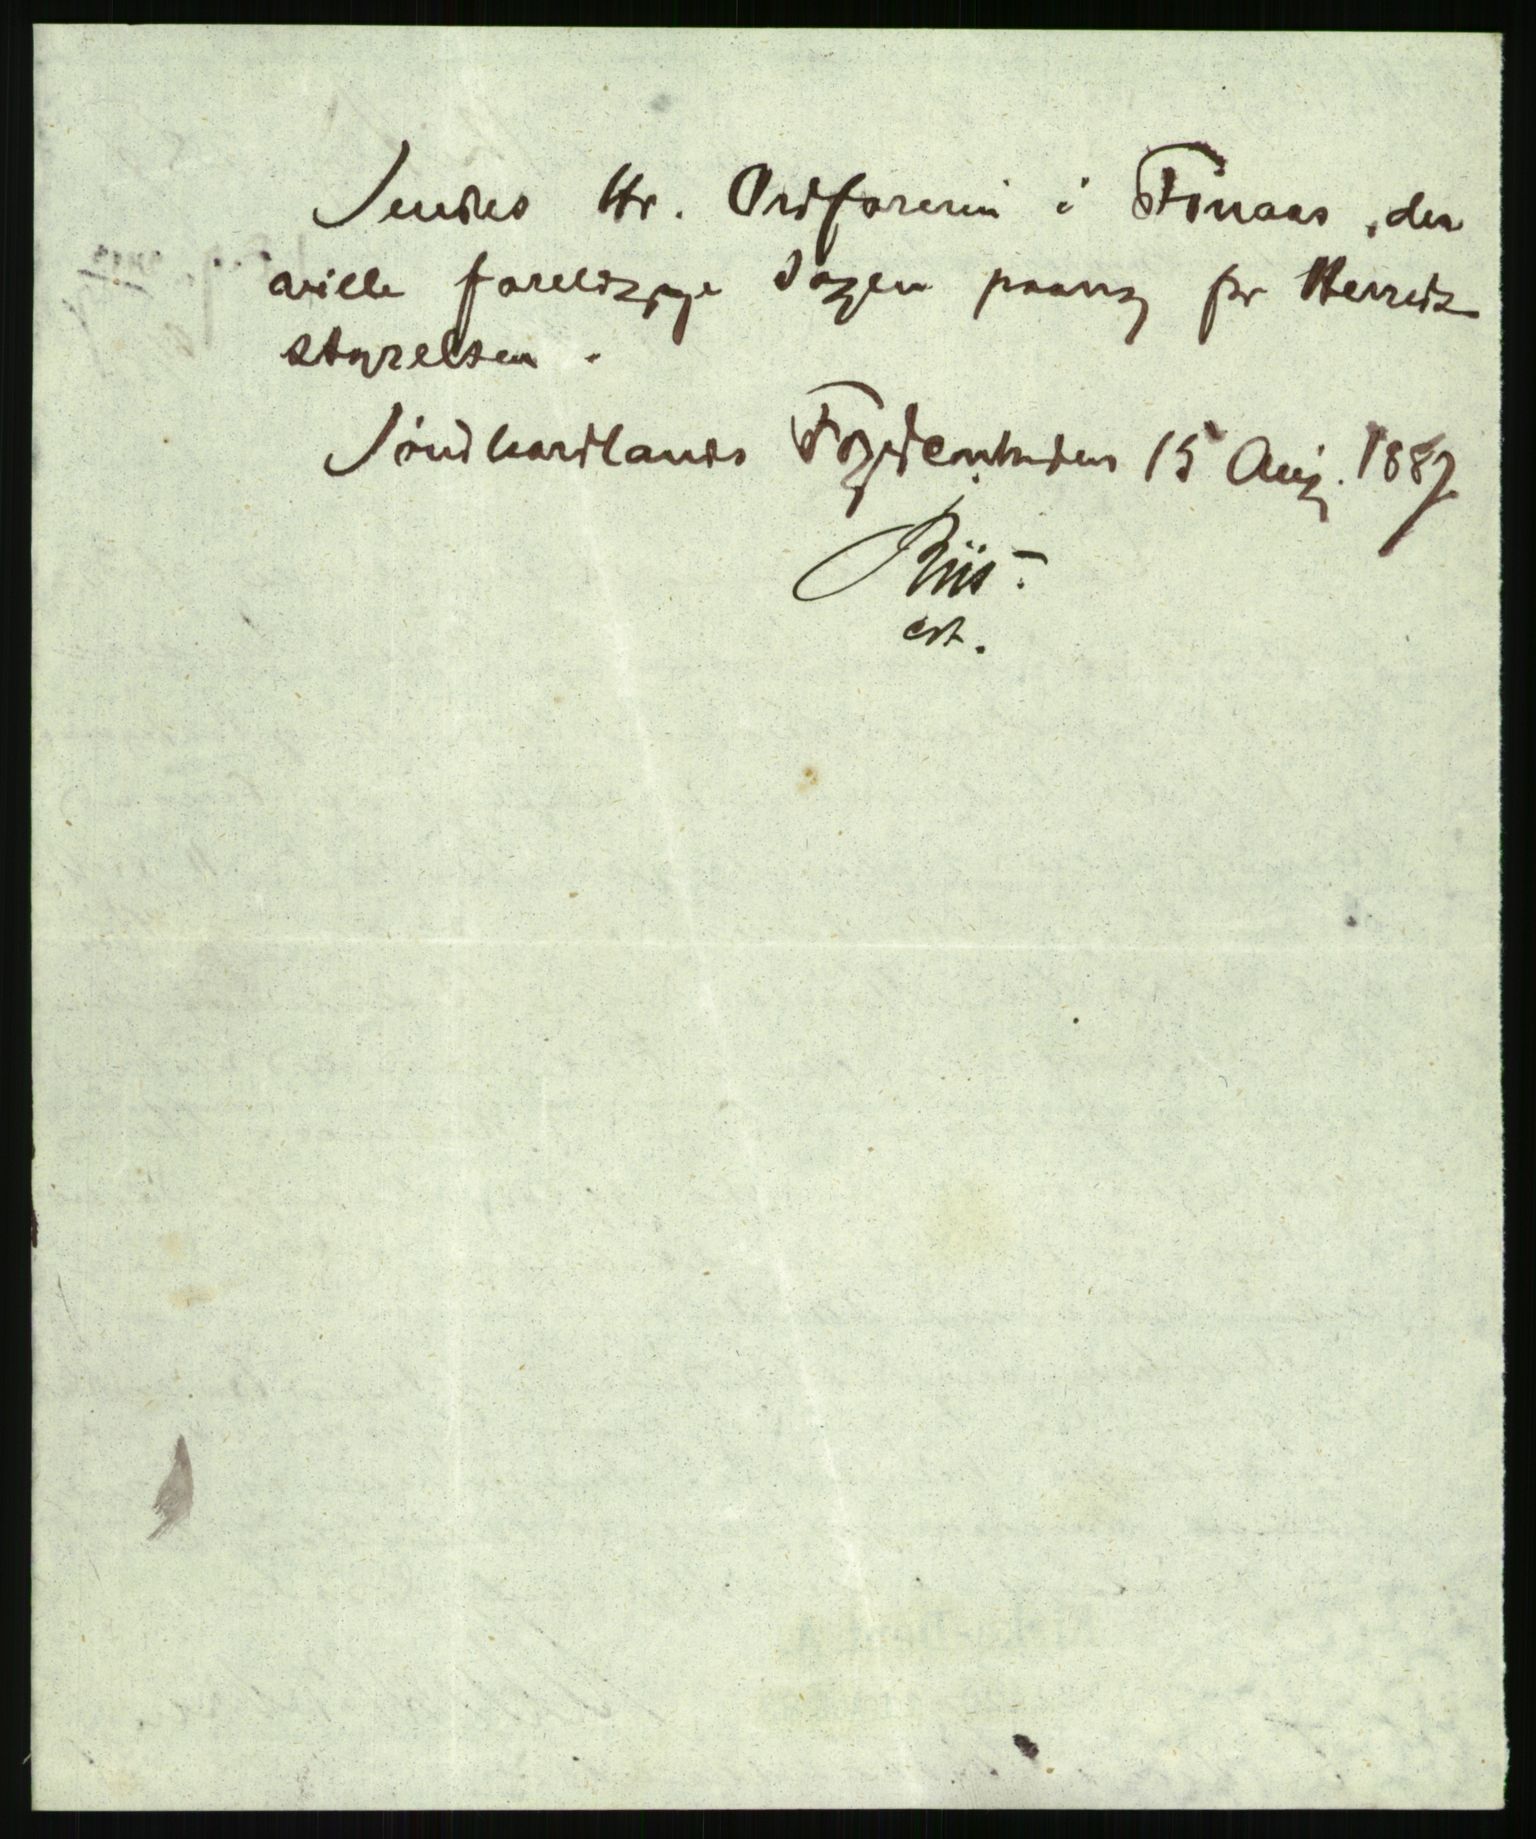 Sendes Hr. Ordføreren i Finaas, der
ville forelægge Sagen paany for Herreds
styrelsen.
Søndhordlands Fogdembeden 15 Aug. 1887
Riis
cst.